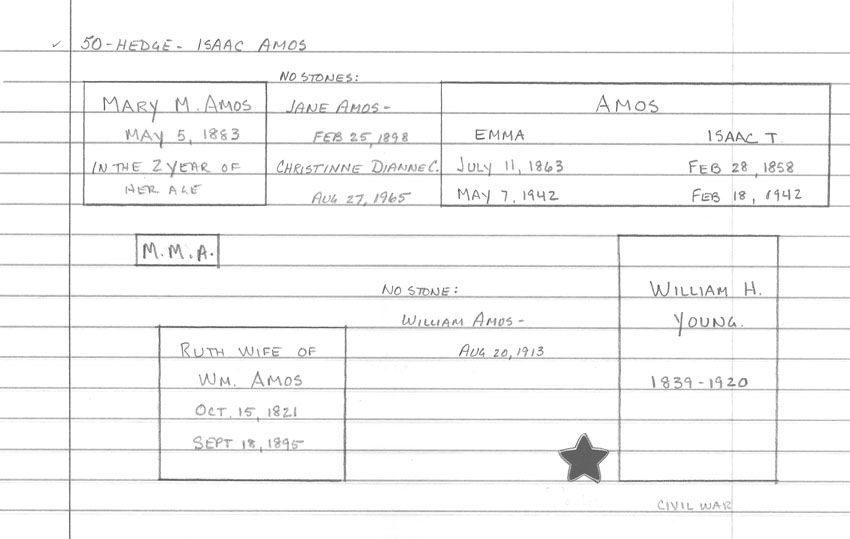 ✓ 50-HEDGE- ISAAC AMOS
MARY M. AMOS
MAY 5, 1883
IN THE 2 YEAR OF
HER AGE
NO STONES:
JANE AMOS-
FEB 25, 1898
CHRISTINNE DIANNE C.
AUG 27, 1965
AMOS
EMMA ISAAC T.
JULY 11, 1863 FEB 28, 1858
MAY 7, 1942 FEB 18, 1942
M.M.A.
NO STONE:
WILLIAM AMOS-
AUG 20, 1913
RUTH WIFE OF
WM. AMOS
OCT. 15, 1821
SEPT 18, 1895
WILLIAM H.
YOUNG.
1839-1920
CIVIL WAR